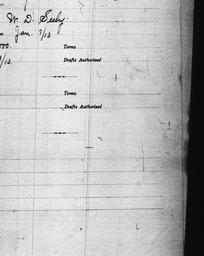 W. D. Seely
Jan. 7/13
000.
Terms
/13.
Drafts Authorized
Terms
Drafts Authorized